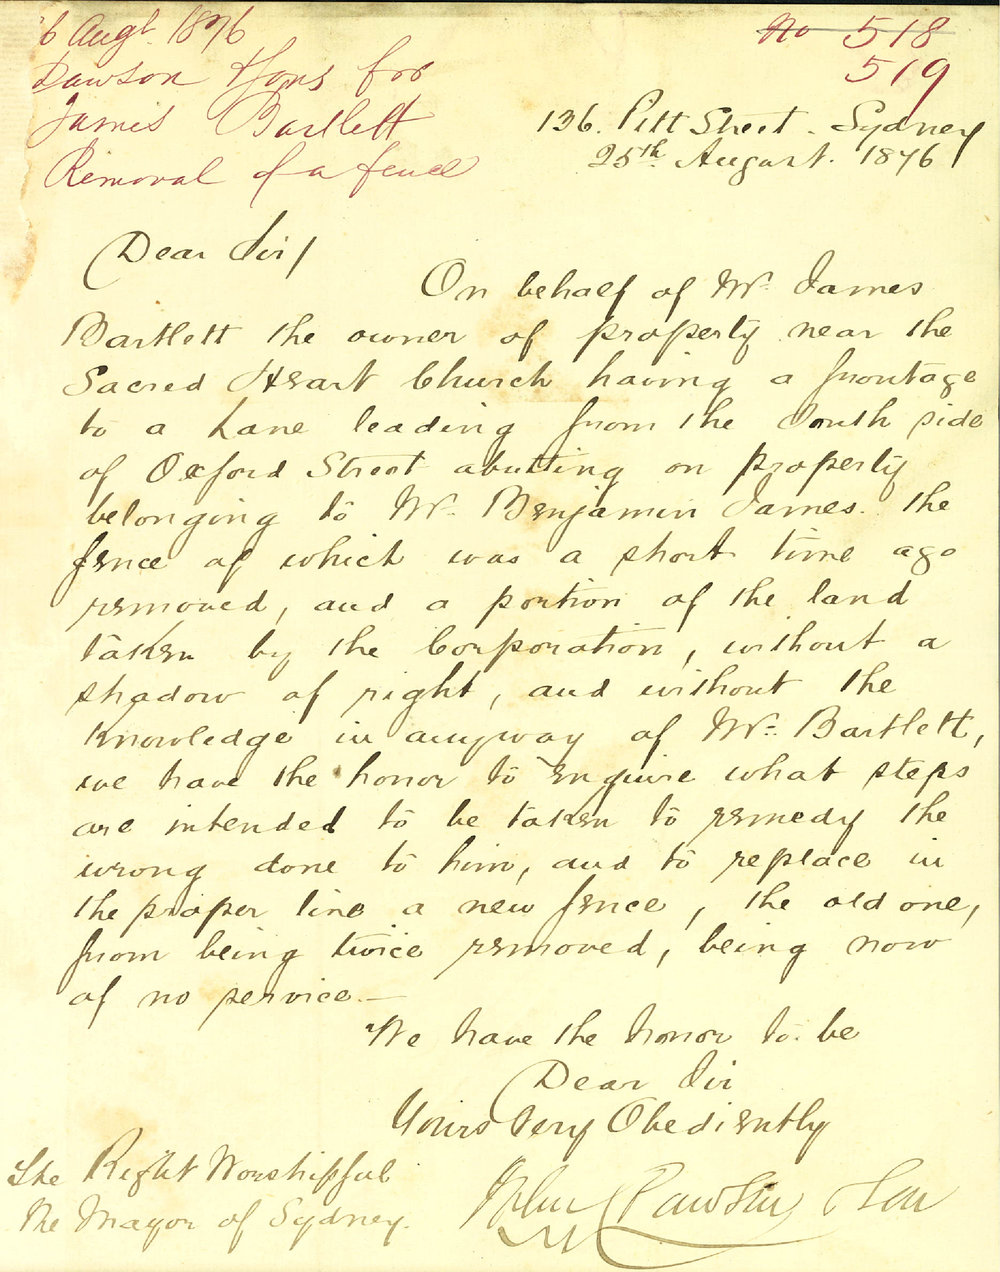 6 Augt. 1876
Dawson & Sons for
James Bartlett
Removal of a fence
No 518
519
136. Pitt Street. Sydney
25th August. 1876
Dear Sir/
On behalf of Mr. James
Bartlett the owner of property near the
Sacred Heart Church having a frontage
to a Lane leading from the South side
of Oxford Street abutting on property
belonging to Mr. Benjamin James. the
fence of which was a short time ago
removed, and a portion of the land
taken by the Corporation, without a
shadow of right, and without the
knowledge in anyway of Mr. Bartlett,
we have the honor to enquire what steps
are intended to be taken to remedy the
wrong done to him, and to replace in
the proper line a new fence, the old one,
from being twice removed, being now
of no service.—
We have the honor to be
Dear Sir
Yours Very Obediently
John Dawson & Son
The Right Worshipful
The Mayor of Sydney.